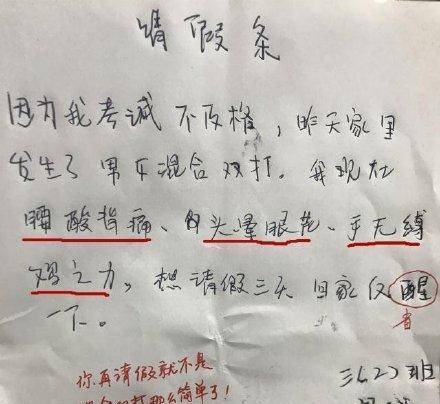 请假条
因为我考试不及格，昨天家里
发生了男女混合双打。我现在
腰酸背痛、头晕眼花、手无缚
鸡之力，想请假三天回家反醒
一下。
省
你再请假就不是
那么简单了！
三(2)班